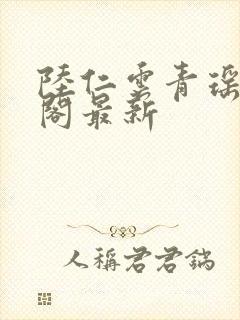 陸仁雲青瑶
閣最新
人稱君君鍋